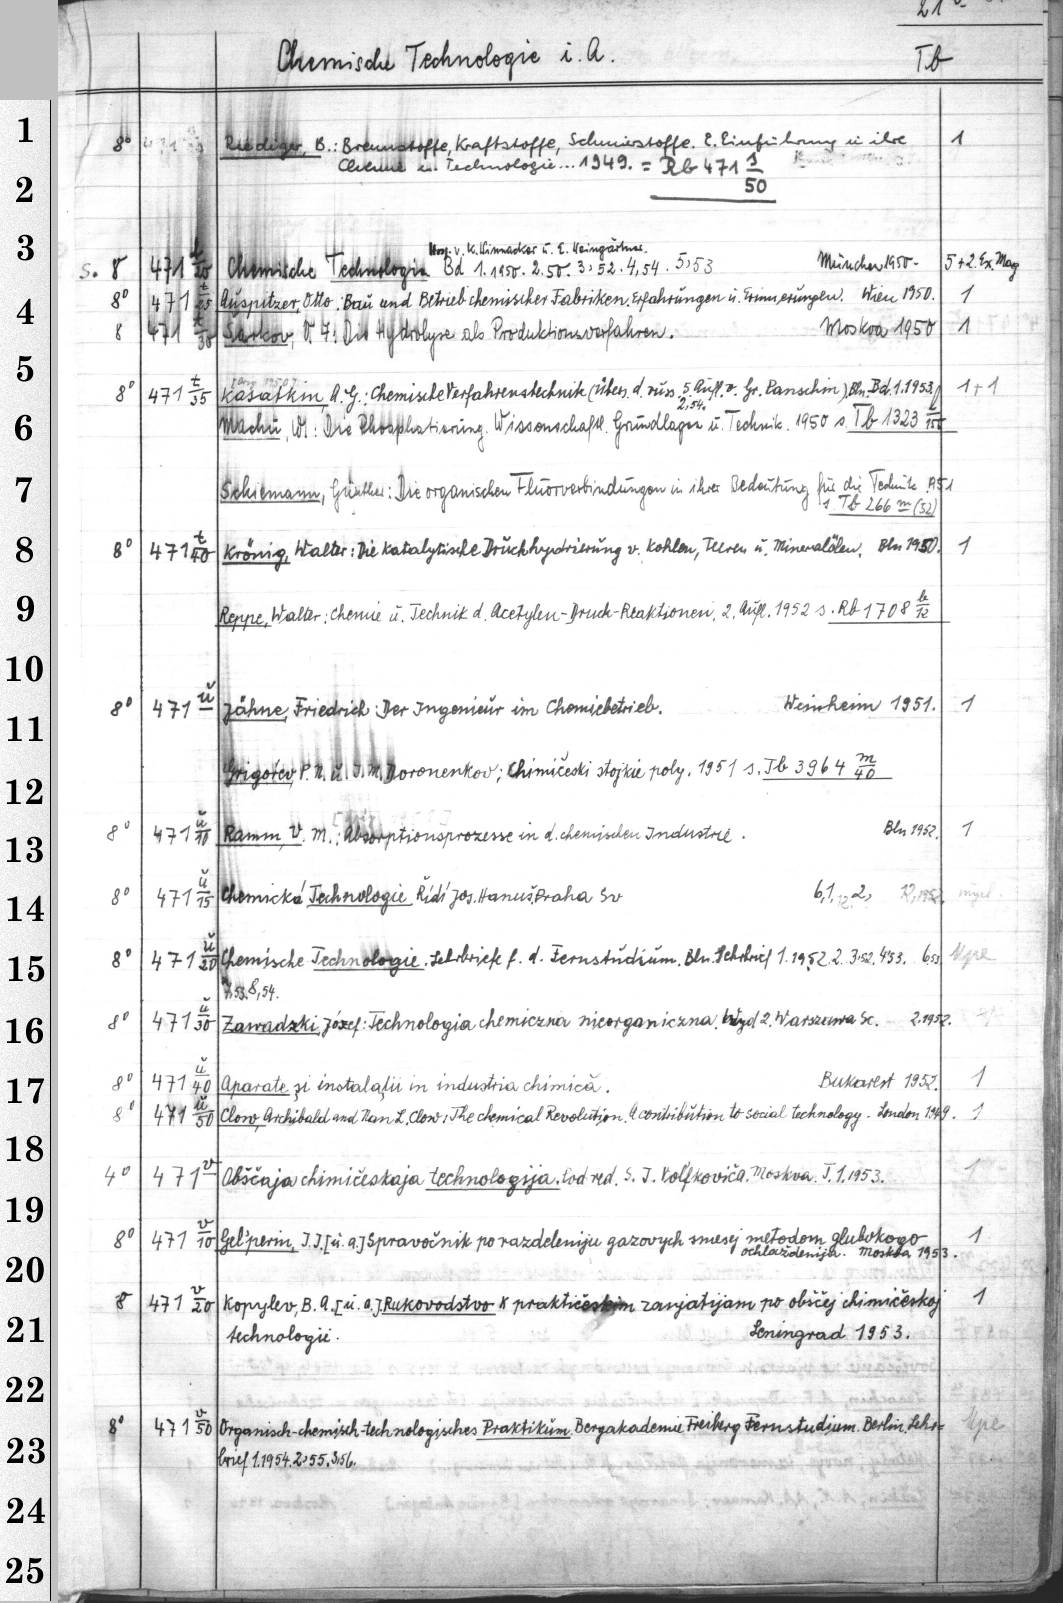 21
Chemische Technologie i. A. Tb
1
8° 471 Riediger, B.: Brennstoffe, Kraftstoffe, Schmierstoffe. E. Einführung in ihre 1
Chemie u. Technologie... 1949. = Rb 471 s/50
2
3
Hrsg. v. K. Winnacker u. E. Weingärtner.
s. 8 471 t/20 Chemische Technologie Bd 1.1950. 2.50. 3,52. 4,54. 5,53 München 1950- 5+2. Ex. Mag
8° 471 t/25 Auspitzer, Otto: Bau und Betrieb chemischer Fabriken. Erfahrungen u. Erinnerungen. Wien 1950. 1
4
8 471 t/30 Šarkov, V. I.: Die Hydrolyse als Produktionsverfahren. Moskva 1950 1
5
8° 471 t/35 Kasatkin, A. G.: Chemische Verfahrenstechnik (Übers. d. russ. 5. Aufl. v. Gr. Panschin). Bln. Bd. 1.1953. 1+1
2,54.
6
Machu, W.: Die Phosphatierung. Wissenschaftl. Grundlagen u. Technik. 1950 s. Tb 1323 t/150
7
Schiemann, Günther: Die organischen Fluorverbindungen in ihrer Bedeutung für die Technik 1951
s. Tb 266 m (52)
8
8° 471 t/40 Krönig, Walter: Die katalytische Druckhydrierung v. Kohlen, Teeren u. Mineralölen. Bln 1950. 1
9
Reppe, Walter: Chemie u. Technik d. Acetylen-Druck-Reaktionen. 2. Aufl. 1952 s. Rb 1708 b/12
10
8° 471 ŭ Jähne, Friedrich: Der Ingenieur im Chemiebetrieb. Weinheim 1951. 1
11
Grigor'ev, P. N. u. I. M. Doronenkov; Chimičeski stojkie poly. 1951 s. Tb 3964 m/40
12
8° 471 ŭ/10 Ramm, V. M.: Absorptionsprozesse in d. chemischen Industrie. Bln 1952. 1
13
8° 471 ŭ/15 Chemická Technologie Řídí Jos. Hanuš. Praha Sv 6,1, 2, 1952.
14
8° 471 ŭ/20 Chemische Technologie. Lehrbriefe f. d. Fernstudium. Bln. Lehrbrief 1.1952. 2. 3.52. 4,53. 6,53
15
7,53. 8,54.
8° 471 ŭ/30 Zawadzki, Józef: Technologia chemiczna nieorganiczna. Wyd 2. Warszawa Sc. 2.1952.
16
8° 471 ŭ/40 Aparate și instalații in industria chimică. Bukarest 1952. 1
17
8° 471 ŭ/50 Clow, Archibald and Nan L. Clow: The chemical Revolution. A contribution to social technology. London 1949. 1
18
4° 471 v Obščaja chimičeskaja technologija. Pod red. S. I. Vol'fkoviča. Moskva. T. 1.1953. 1
19
8° 471 v/10 Gel'perin, I. I. [u. a.] Spravočnik po razdeleniju gazovych smesej metodom glubokogo 1
ochlaždenija. Moskva 1953.
20
8 471 v/20 Kopylev, B. A. [u. a.] Rukovodstvo k praktičeskim zanjatijam po obščej chimičeskoj 1
21
technologii. Leningrad 1953.
22
8° 471 v/50 Organisch-chemisch-technologisches Praktikum. Bergakademie Freiberg Fernstudium. Berlin. Lehr-
23
brief 1.1954. 2,55. 3,56.
24
25